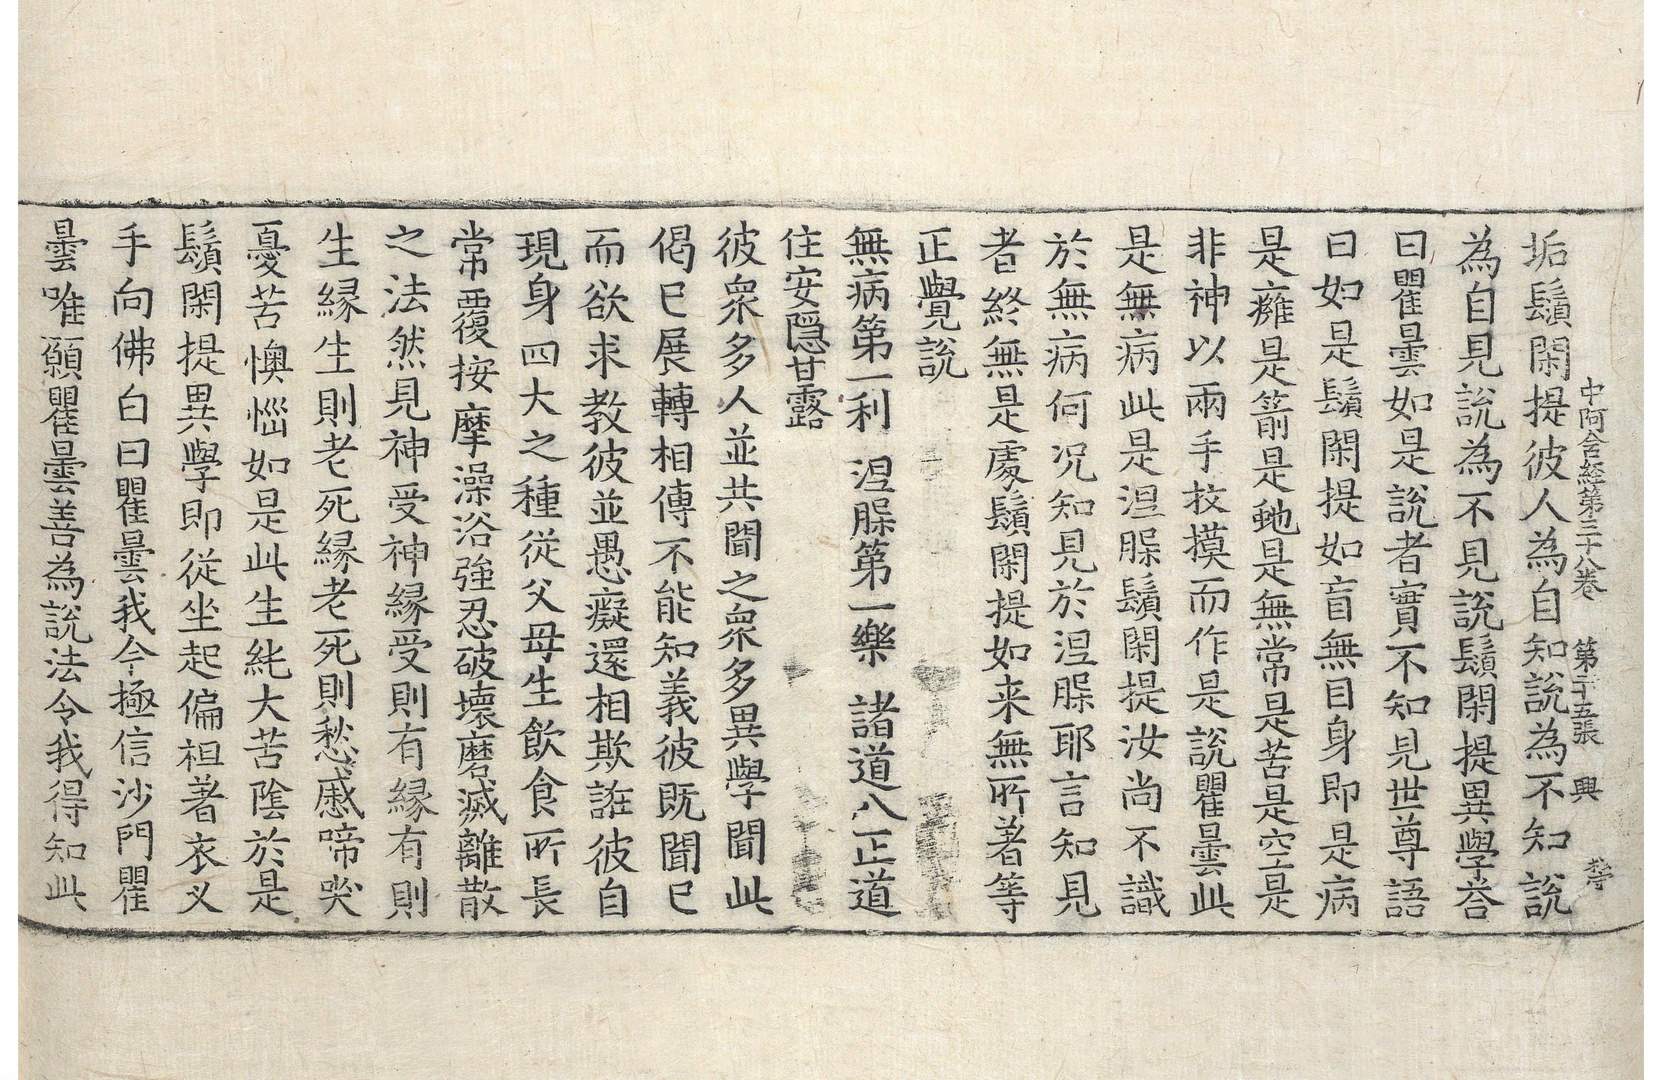 中阿含經第三十八卷 第二十五張 興
垢鬚閑提彼人為自知說為不知說
為自見說為不見說鬚閑提異學荅
曰瞿曇如是說者實不知見世尊語
曰如是鬚閑提如盲無目身即是病
是癰是箭是虵是無常是苦是空是
非神以兩手抆摸而作是說瞿曇此
是無病此是涅槃鬚閑提汝尚不識
於無病何況知見於涅槃耶言知見
者終無是處鬚閑提如来無所著等
正覺說
無病第一利 涅槃第一樂 諸道八正道
住安隱甘露
彼衆多人並共聞之衆多異學聞此
偈已展轉相傳不能知義彼既聞已
而欲求教彼並愚癡還相欺誑彼自
現身四大之種從父母生飲食所長
常覆按摩澡浴強忍破壞磨滅離散
之法然見神受神緣受則有緣有則
生緣生則老死緣老死則愁慼啼哭
憂苦懊惱如是此生純大苦陰於是
鬚閑提異學即從坐起偏袒著衣叉
手向佛白曰瞿曇我今極信沙門瞿
曇唯願瞿曇善為說法令我得知此